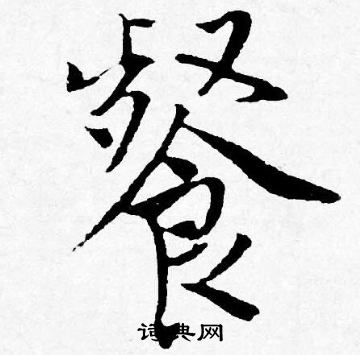 餐
词典网